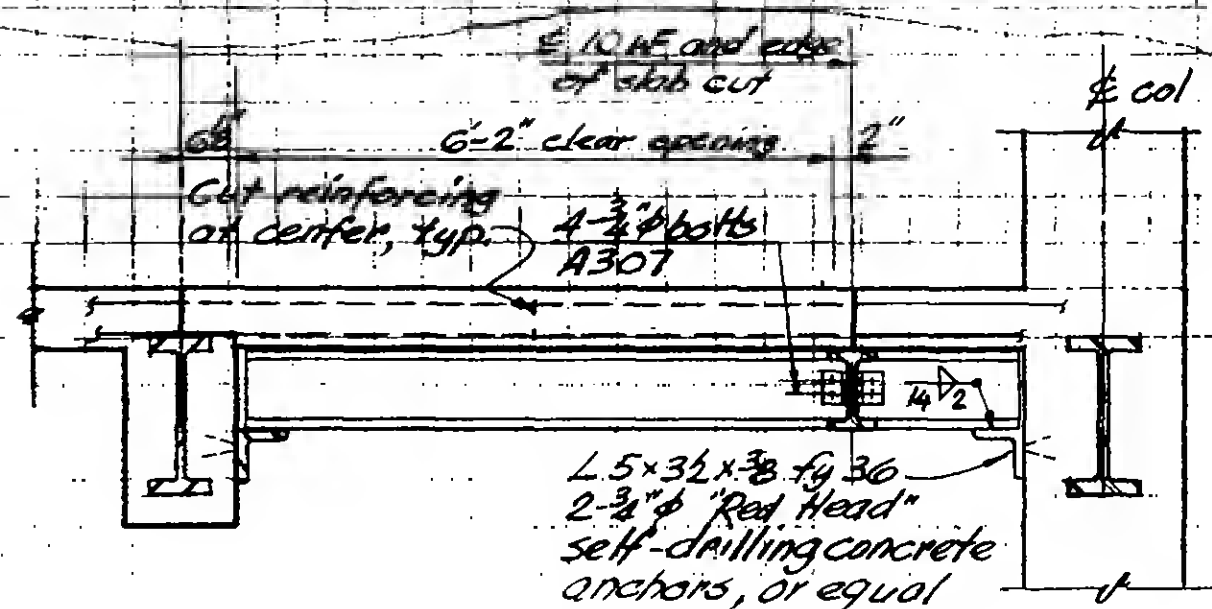 ℄ 10 WF and edge
of slab cut
℄ col
6'-2" clear opening
2"
Cut reinforcing
at center, typ.
4-¾"φ bolts
A307
¼ 2
L 5×3½×⅜ fy 36
2-¾"φ "Red Head"
self-drilling concrete
anchors, or equal